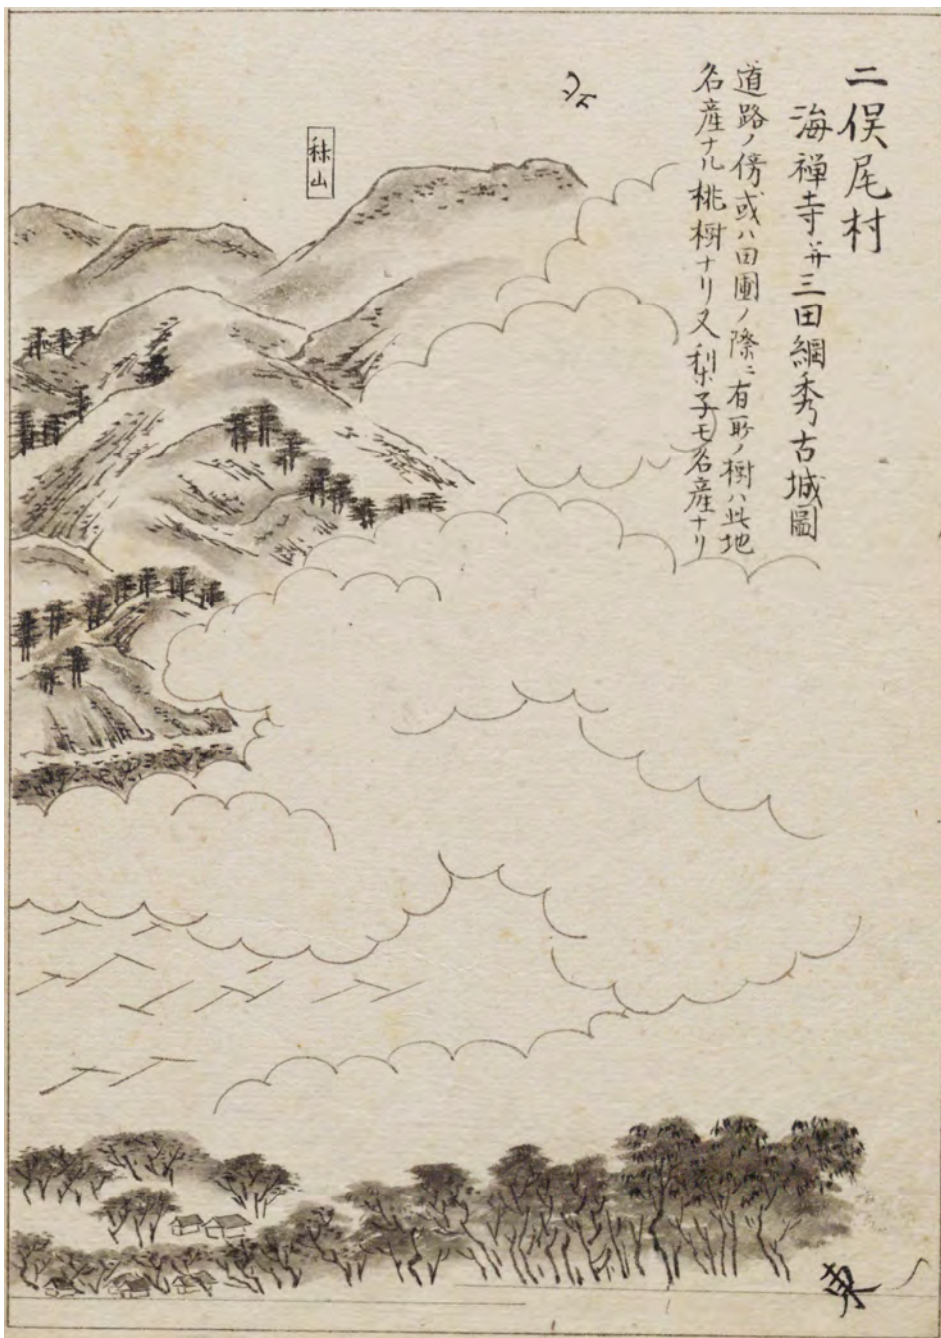 二俣尾村
海禅寺并三田綱秀古城圖
道路ノ傍或ハ田圃ノ際ニ有所ノ樹ハ此地
名産ナル桃樹ナリ又梨子モ名産ナリ
山
東